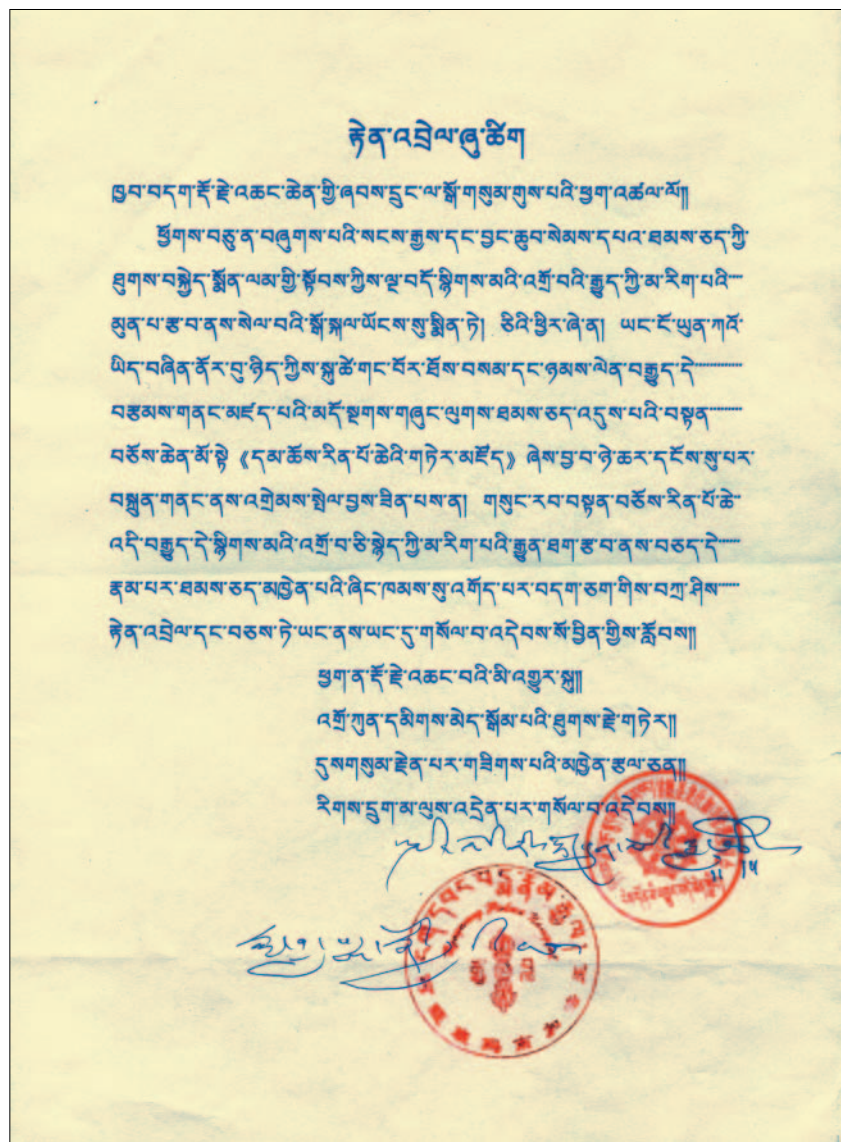 རྟེན་འབྲེལ་ཞུ་ཚིག
ཁྱབ་བདག་རྡོ་རྗེ་འཆང་ཆེན་གྱི་ཞབས་དྲུང་ལ་སྒོ་གསུམ་གུས་པའི་ཕྱག་འཚལ་ལོ།།
ཕྱོགས་བཅུ་ན་བཞུགས་པའི་སངས་རྒྱས་དང་བྱང་ཆུབ་སེམས་དཔའ་ཐམས་ཅད་ཀྱི་
ཐུགས་བསྐྱེད་སྨོན་ལམ་གྱི་སྟོབས་ཀྱིས་ལྔ་བདོ་སྙིགས་མའི་འགྲོ་བའི་རྒྱུད་ཀྱི་མ་རིག་པའི་
མུན་པ་རྩ་བ་ནས་སེལ་བའི་སྒོ་སྐལ་ཡོངས་སུ་སྨིན་ཏེ། ཅིའི་ཕྱིར་ཞེ་ན། ཡང་ངོ་ཡུན་ཀའོ་
ཡིད་བཞིན་ནོར་བུ་ཉིད་ཀྱིས་སྐུ་ཚེ་གང་བོར་ཐོས་བསམ་དང་ཉམས་ལེན་བརྒྱུད་དེ་
བརྩམས་གནང་མཛད་པའི་མདོ་སྔགས་གཞུང་ལུགས་ཐམས་ཅད་འདུས་པའི་བསྟན་
བཅོས་ཆེན་མོ་སྟེ 《དམ་ཆོས་རིན་པོ་ཆེའི་གཏེར་མཛོད》 ཞེས་བྱ་བ་ཉེ་ཆར་དངོས་སུ་པར་
བསྐྲུན་གནང་ནས་འགྲེམས་སྤེལ་བྱས་ཟིན་པས་ན། གསུང་རབ་བསྟན་བཅོས་རིན་པོ་ཆེ་
འདི་བརྒྱུད་དེ་སྙིགས་མའི་འགྲོ་བ་ཅི་སྙེད་ཀྱི་མ་རིག་པའི་རྒྱུན་ཐག་རྩ་བ་ནས་བཅད་དེ་
རྣམ་པར་ཐམས་ཅད་མཁྱེན་པའི་ཞིང་ཁམས་སུ་འགོད་པར་བདག་ཅག་གིས་བཀྲ་ཤིས་
རྟེན་འབྲེལ་དང་བཅས་ཏེ་ཡང་ནས་ཡང་དུ་གསོལ་བ་འདེབས་སོ་བྱིན་གྱིས་རློབས།།
ཕྱག་ན་རྡོ་རྗེ་འཆང་བའི་མི་འགྱུར་སྐུ།།
འགྲོ་ཀུན་དམིགས་མེད་སྒོམ་པའི་ཐུགས་རྗེ་གཏེར།།
དུསགསུམ་རྗེན་པར་གཟིགས་པའི་མཁྱེན་རྩལ་ཅན།།
རིགས་དྲུག་མ་ལུས་འདྲེན་པར་གསོལ་བ་འདེབས།།